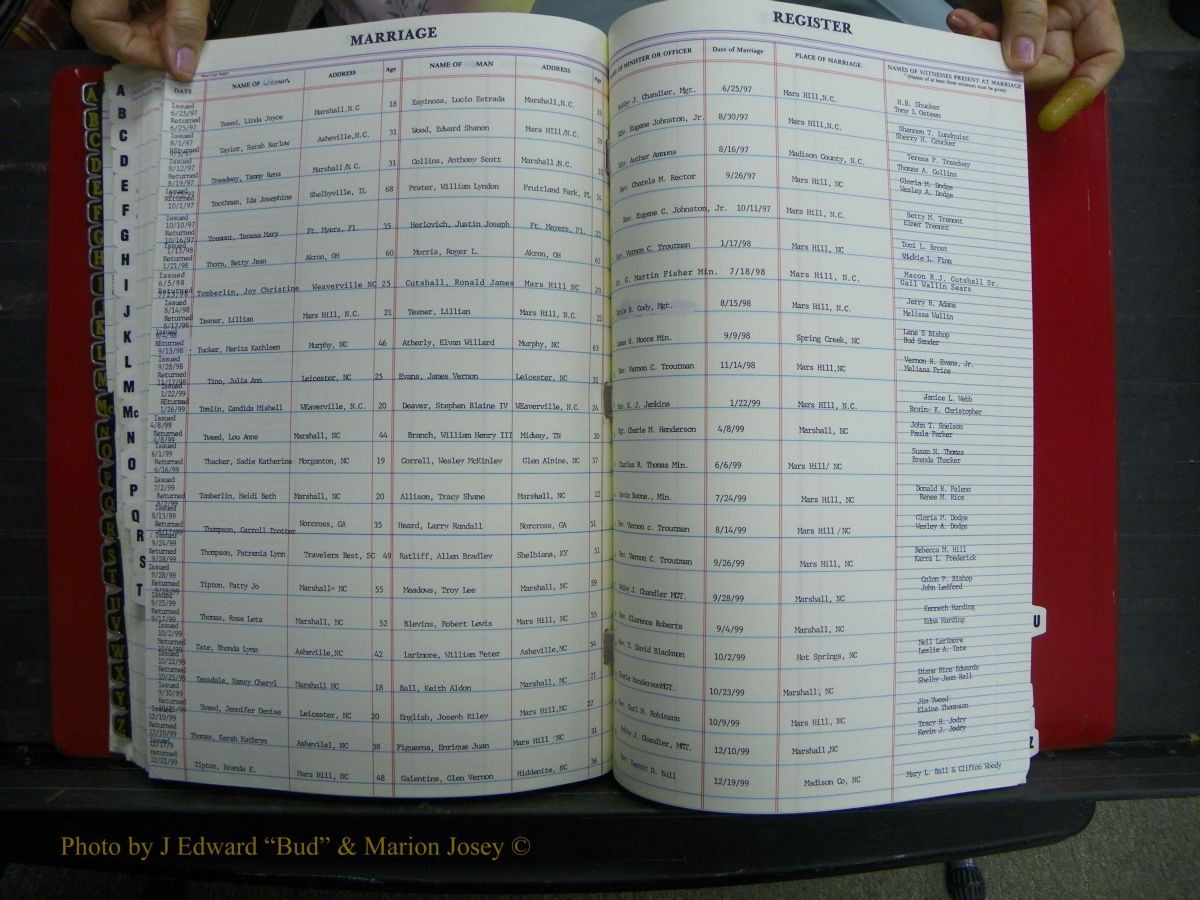 MARRIAGE
REGISTER
DATE NAME OF Woman ADDRESS Age NAME OF MAN ADDRESS Age OF MINISTER OR OFFICER Date of Marriage PLACE OF MARRIAGE NAMES OF WITNESSES PRESENT AT MARRIAGE
(Names of at least three witnesses must be given)
Issued 6/25/97 Returned 6/25/97 Tweed, Linda Joyce Marshall,N.C 18 Espinoza, Lucio Estrada Marshall,N.C. J. Chandler, Mgt. 6/25/97 Mars Hill,N.C. H.B. Shucker
Tony L Osteen
Issued 8/1/97 Returned Taylor, Sarah Barlow Asheville,N.C. 31 Wood, Edward Shanon Mars Hill,N.C. Eugene Johnston, Jr. 8/30/97 Mars Hill,N.C. Shannon T. Lundquist
Sherry H. Crocker
Issued 8/12/97 Returned 8/19/97 Treadway, Tammy Rena Marshall,N.C. 31 Collins, Anthony Scott Marshall,N.C. Auther Ammons 8/16/97 Madison County, N.C. Teresa P. Treadway
Thomas A. Collins
Returned 10/1/97 Toothman, Ida Josephine Shelbyville, IL 68 Prater, William Lyndon Fruitland Park, FL Rev. Charels M. Rector 9/26/97 Mars Hill, NC Gloria M. Dodge
Wesley A. Dodge
Issued 10/10/97 Returned 10/16/97 Tremont, Teresa Mary Ft. Myers, Fl. 35 Herlovich, Justin Joseph Ft. Meyers, Fl. Rev. Eugene C. Johnston, Jr. 10/11/97 Mars Hill, N.C. Betty M. Tremont
Elmer Tremont
Issued 1/15/98 Returned 1/21/98 Thorn, Betty Jean Akron, OH 60 Morris, Roger L. Akron, OH 61 Vernon C. Troutman 1/17/98 Mars Hill, NC Toni L. Brost
Vickie L. Finn
Issued 6/5/98 Returned Tomberlin, Joy Christine Weaverville NC 25 Cutshall, Ronald James Mars Hill NC G. Martin Fisher Min. 7/18/98 Mars Hill, N.C. Macon R.J. Cutshall Sr.
Gail Wallin Sears
Issued 8/14/98 Returned 8/17/98 Tesner, Lillian Mars Hill, N.C. 21 Tesner, Lillian Mars Hill, N.C. 21 B. Cody, Mgt. 8/15/98 Mars Hill, N.C. Jerry R. Adams
Melissa Wallin
REturned 9/15/98 Tucker, Merita Kathleen Murphy, NC 46 Atherly, Elvan Willard Murphy, NC 63 H. Moore Min. 9/9/98 Spring Creek, NC Lane S Bishop
Bud Sauder
Issued 9/28/98 Returned 11/17/98 Tino, Julia Ann Leicester, NC 25 Evans, James Vernon Leicester, NC 32 Rev. Vernon C. Troutman 11/14/98 Mars Hill,NC Vernon N. Evans, Jr.
Melissa Price
Issued 1/22/99 REturned 1/26/99 Tomlin, Candida Mishell WEaverville, N.C. 20 Deaver, Stephen Blaine IV WEaverville, N.C. 24 Rev. E. J. Jenkins 1/22/99 Mars Hill, N.C. Janice L. Webb
Brain K. Christopher
Issued 4/8/99 Returned 4/8/99 Tweed, Lou Anne Marshall, NC 44 Branch, William Henry III Midway, TN 30 Mgt. Cherie M. Henderson 4/8/99 Marshall, NC John T. Snelson
Paula Parker
Issued 6/1/99 Returned 6/16/99 Thacker, Sadie Katherine Morganton, NC 19 Correll, Wesley McKinley Glen Alpine, NC 37 Charles R. Thomas Min. 6/6/99 Mars Hill/ NC Susan N. Thomas
Brenda Thacker
Issued 7/2/99 Returned Tomberlin, Heidi Beth Marshall, NC 20 Allison, Tracy Shane Marshall, NC 22 Boone., Min. 7/24/99 Mars Hill, NC Donald R. Paleno
Renee M. Rice
Issued 8/13/99 Returned 8/17/99 Thompson, Carroll Trotter Norcross, GA 35 Heard, Larry Randall Norcross, GA 31 Rev. Vernon c. Troutman 8/14/99 Mars Hill /NC Gloria M. Dodge
Wesley A. Dodge
Issued 9/24/99 Returned 9/28/99 Thompson, Patrenia Lynn Travelers Rest, SC 49 Ratliff, Allen Bradley Shelbiana, KY 51 Rev. Vernon C. Troutman 9/26/99 Mars Hill, NC Rebecca M. Hill
Karra L. Frederick
Issued 9/28/99 Returned Tipton, Patty Jo Marshall= NC 55 Meadows, Troy Lee Marshall, NC 59 Bobby J. Chandler MGT. 9/28/99 Marshall, NC Colon P. Bishop
John Ledford
Issued 9/25/99 Returned 9/17/99 Thomas, Rose Leta Marshall, NC 52 Blevins, Robert Lewis Mars Hill, NC 55 Rev. Clarence Roberts 9/4/99 Marshall, NC Kenneth Harding
Edna Harding
Issued 10/2/99 Returned 10/4/99 Tate, Rhonda Lynn Asheville,NC 42 Larimore, William Peter Asheville,NC 54 Rev. T. David Blackmon 10/2/99 Hot Springs, NC Neil Larimore
Leslie A. Tate
Issued 10/22/99 Returned 10/25/99 Teasdale, Nancy Cheryl Marshall NC 18 Ball, Keith Aldon Marshall, NC 21 HendersonMGT. 10/23/99 Marshall, NC Diane Rice Edwards
Shelby Jean Ball
Issued 9/30/99 Returned Tweed, Jennifer Denise Leicester, NC 20 English, Joseph Riley Mars Hill,NC 22 Rev. Carl M. Robinson 10/9/99 Mars Hill, NC Jim Tweed
Elaine Thomason
Issued 12/10/99 Returned 12/10/99 Thomas, Sarah Kathryn Ashevilel, NC 38 Figueroa, Enrique Juan Mars Hill NC 31 Bobby J. Chandler, MGT. 12/10/99 Marshall,NC Tracy H. Jodry
Kevin J. Jodry
returned 12/21/99 Tipton, Brenda K. Mars Hill, NC 48 Galentine, Glen Vernon Hiddenite, NC 36 Rev. Kermit D. Ball 12/19/99 Madison Co, NC Mary L. Ball & Clifton Woody
A
B
C
D
E
F
G
H
I
J
K
L
M
Mc
N
O
P
Q
R
S
T
U
Z
Photo by J Edward “Bud” & Marion Josey ©